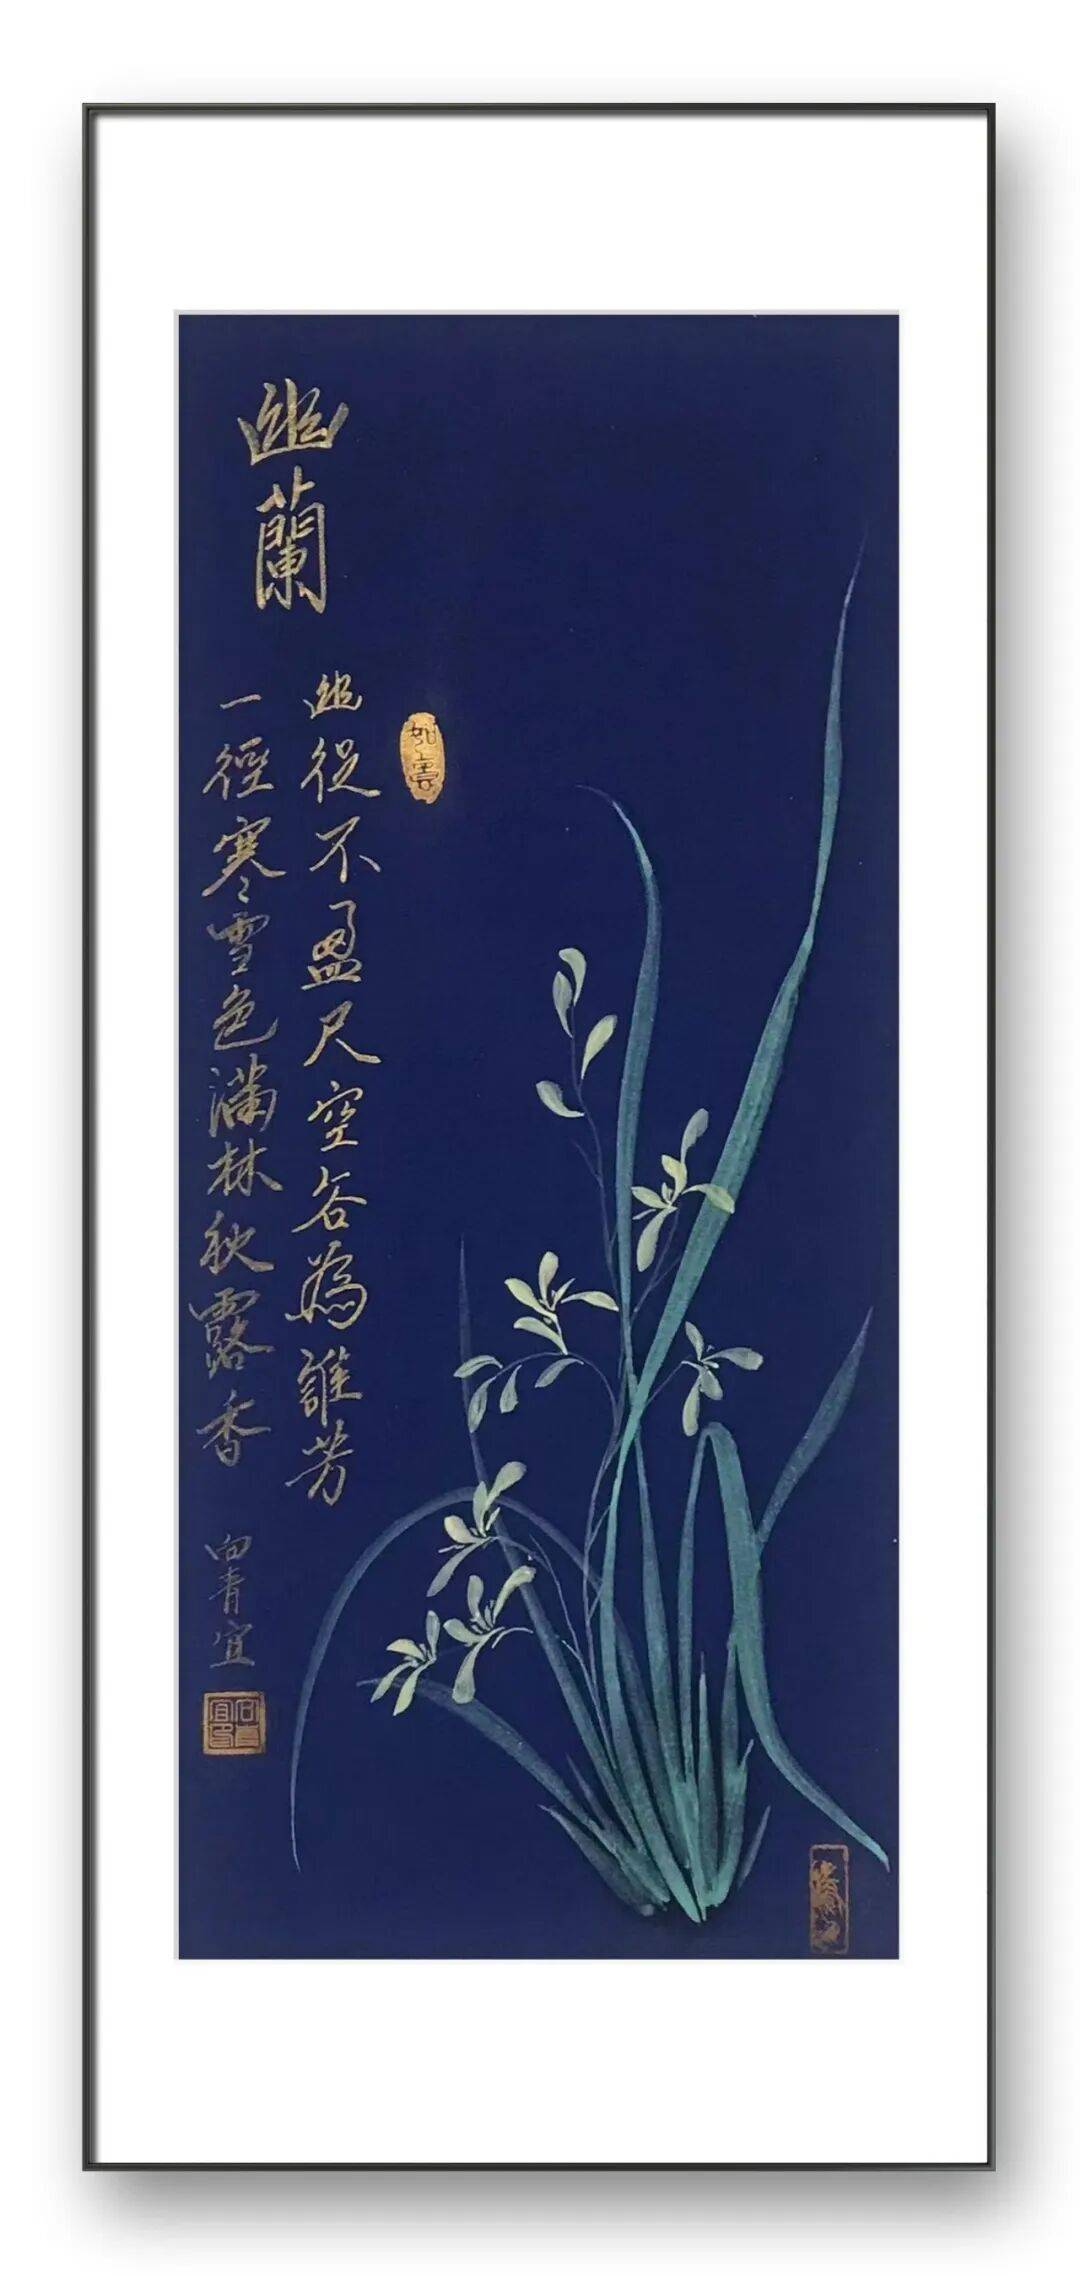 幽蘭
幽從不盈尺空谷為誰芳
一徑寒雪色滿林秋露香
向青宜